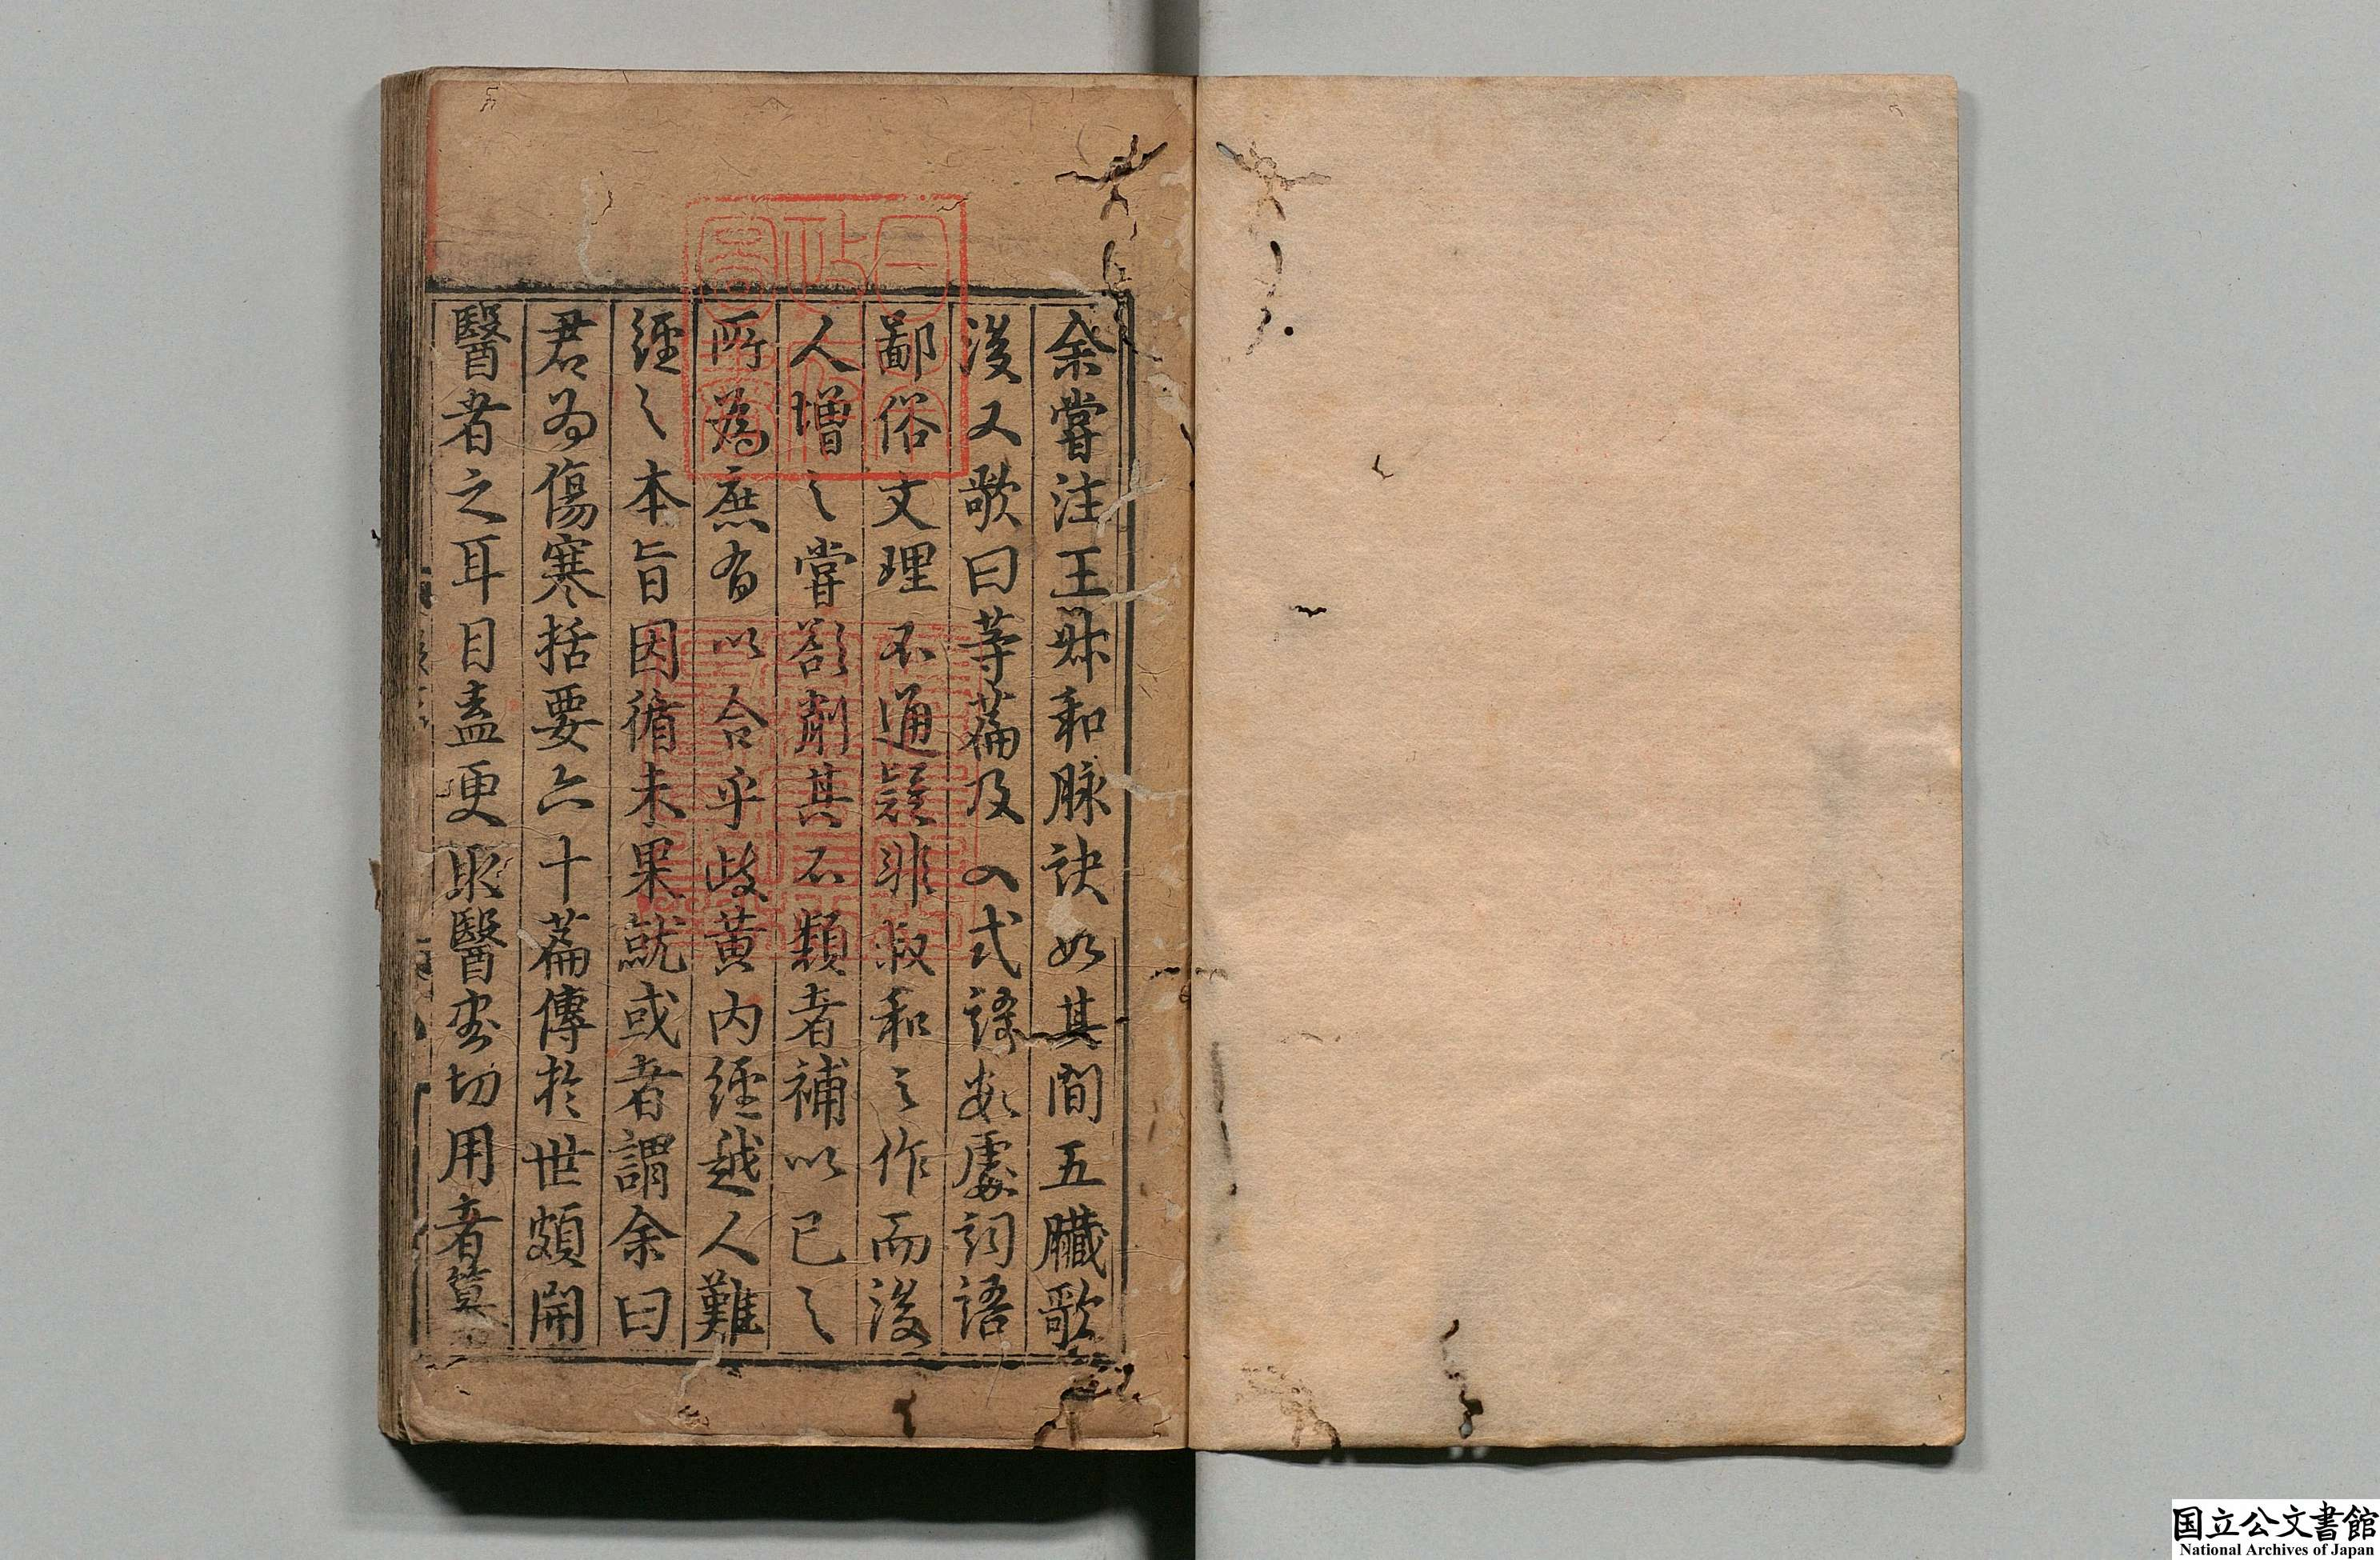 余嘗注王叔和脉訣如其間五臟歌
後又歌曰等篇及入式謌數處詞語
鄙俗文理不通疑非叔和之作而後
人增之嘗欲削其不類者補以已之
所爲庶有以合乎岐黄内經越人難
經之本旨因循未果就或者謂余曰
君为傷寒括要六十篇傳於世頗開
醫者之耳目盍更取醫家切用者
国立公文書館
National Archives of Japan